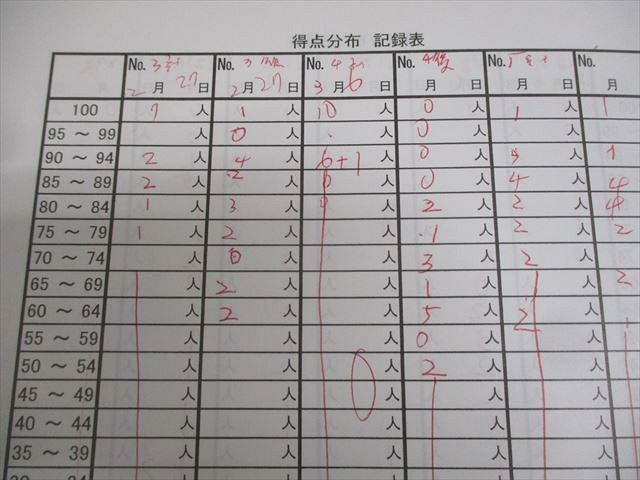 得点分布 記録表
No. 3 No. 3 No. 4 No. 4 No. 5 No.
2月 27日 2月27日 3月6日 月 日 月 日 月
100 7人 1人 10人 0人 1人 1
95 ～ 99 人 0人 人 0人 人
90 ～ 94 2人 4人 6+1人 0人 人 1
85 ～ 89 2人 2人 0人 0人 4人 4
80 ～ 84 1人 3人 人 2人 2人 4
75 ～ 79 1人 2人 人 1人 2人 2
70 ～ 74 人 0人 人 3人 2人
65 ～ 69 人 2人 人 1人 人 2
60 ～ 64 人 2人 人 5人 2人
55 ～ 59 人 人 人 0人 人
50 ～ 54 人 人 人 2人 人
45 ～ 49 人 人 人 人 人
40 ～ 44 人 人 人 人 人
35 ～ 39 人 人 人 人 人